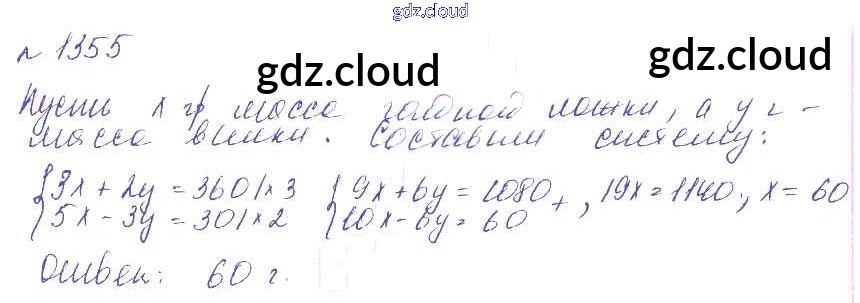 gdz.cloud
№ 1355
gdz.cloud gdz.cloud
Пусть x гр масса чайной ложки, а y г -
масса вилки. Составим систему:
{3x + 2y = 360 | × 3 {9x + 6y = 1080 + , 19x = 1140, x = 60
{5x - 3y = 30 | × 2 {10x - 6y = 60
Ответ: 60 г.